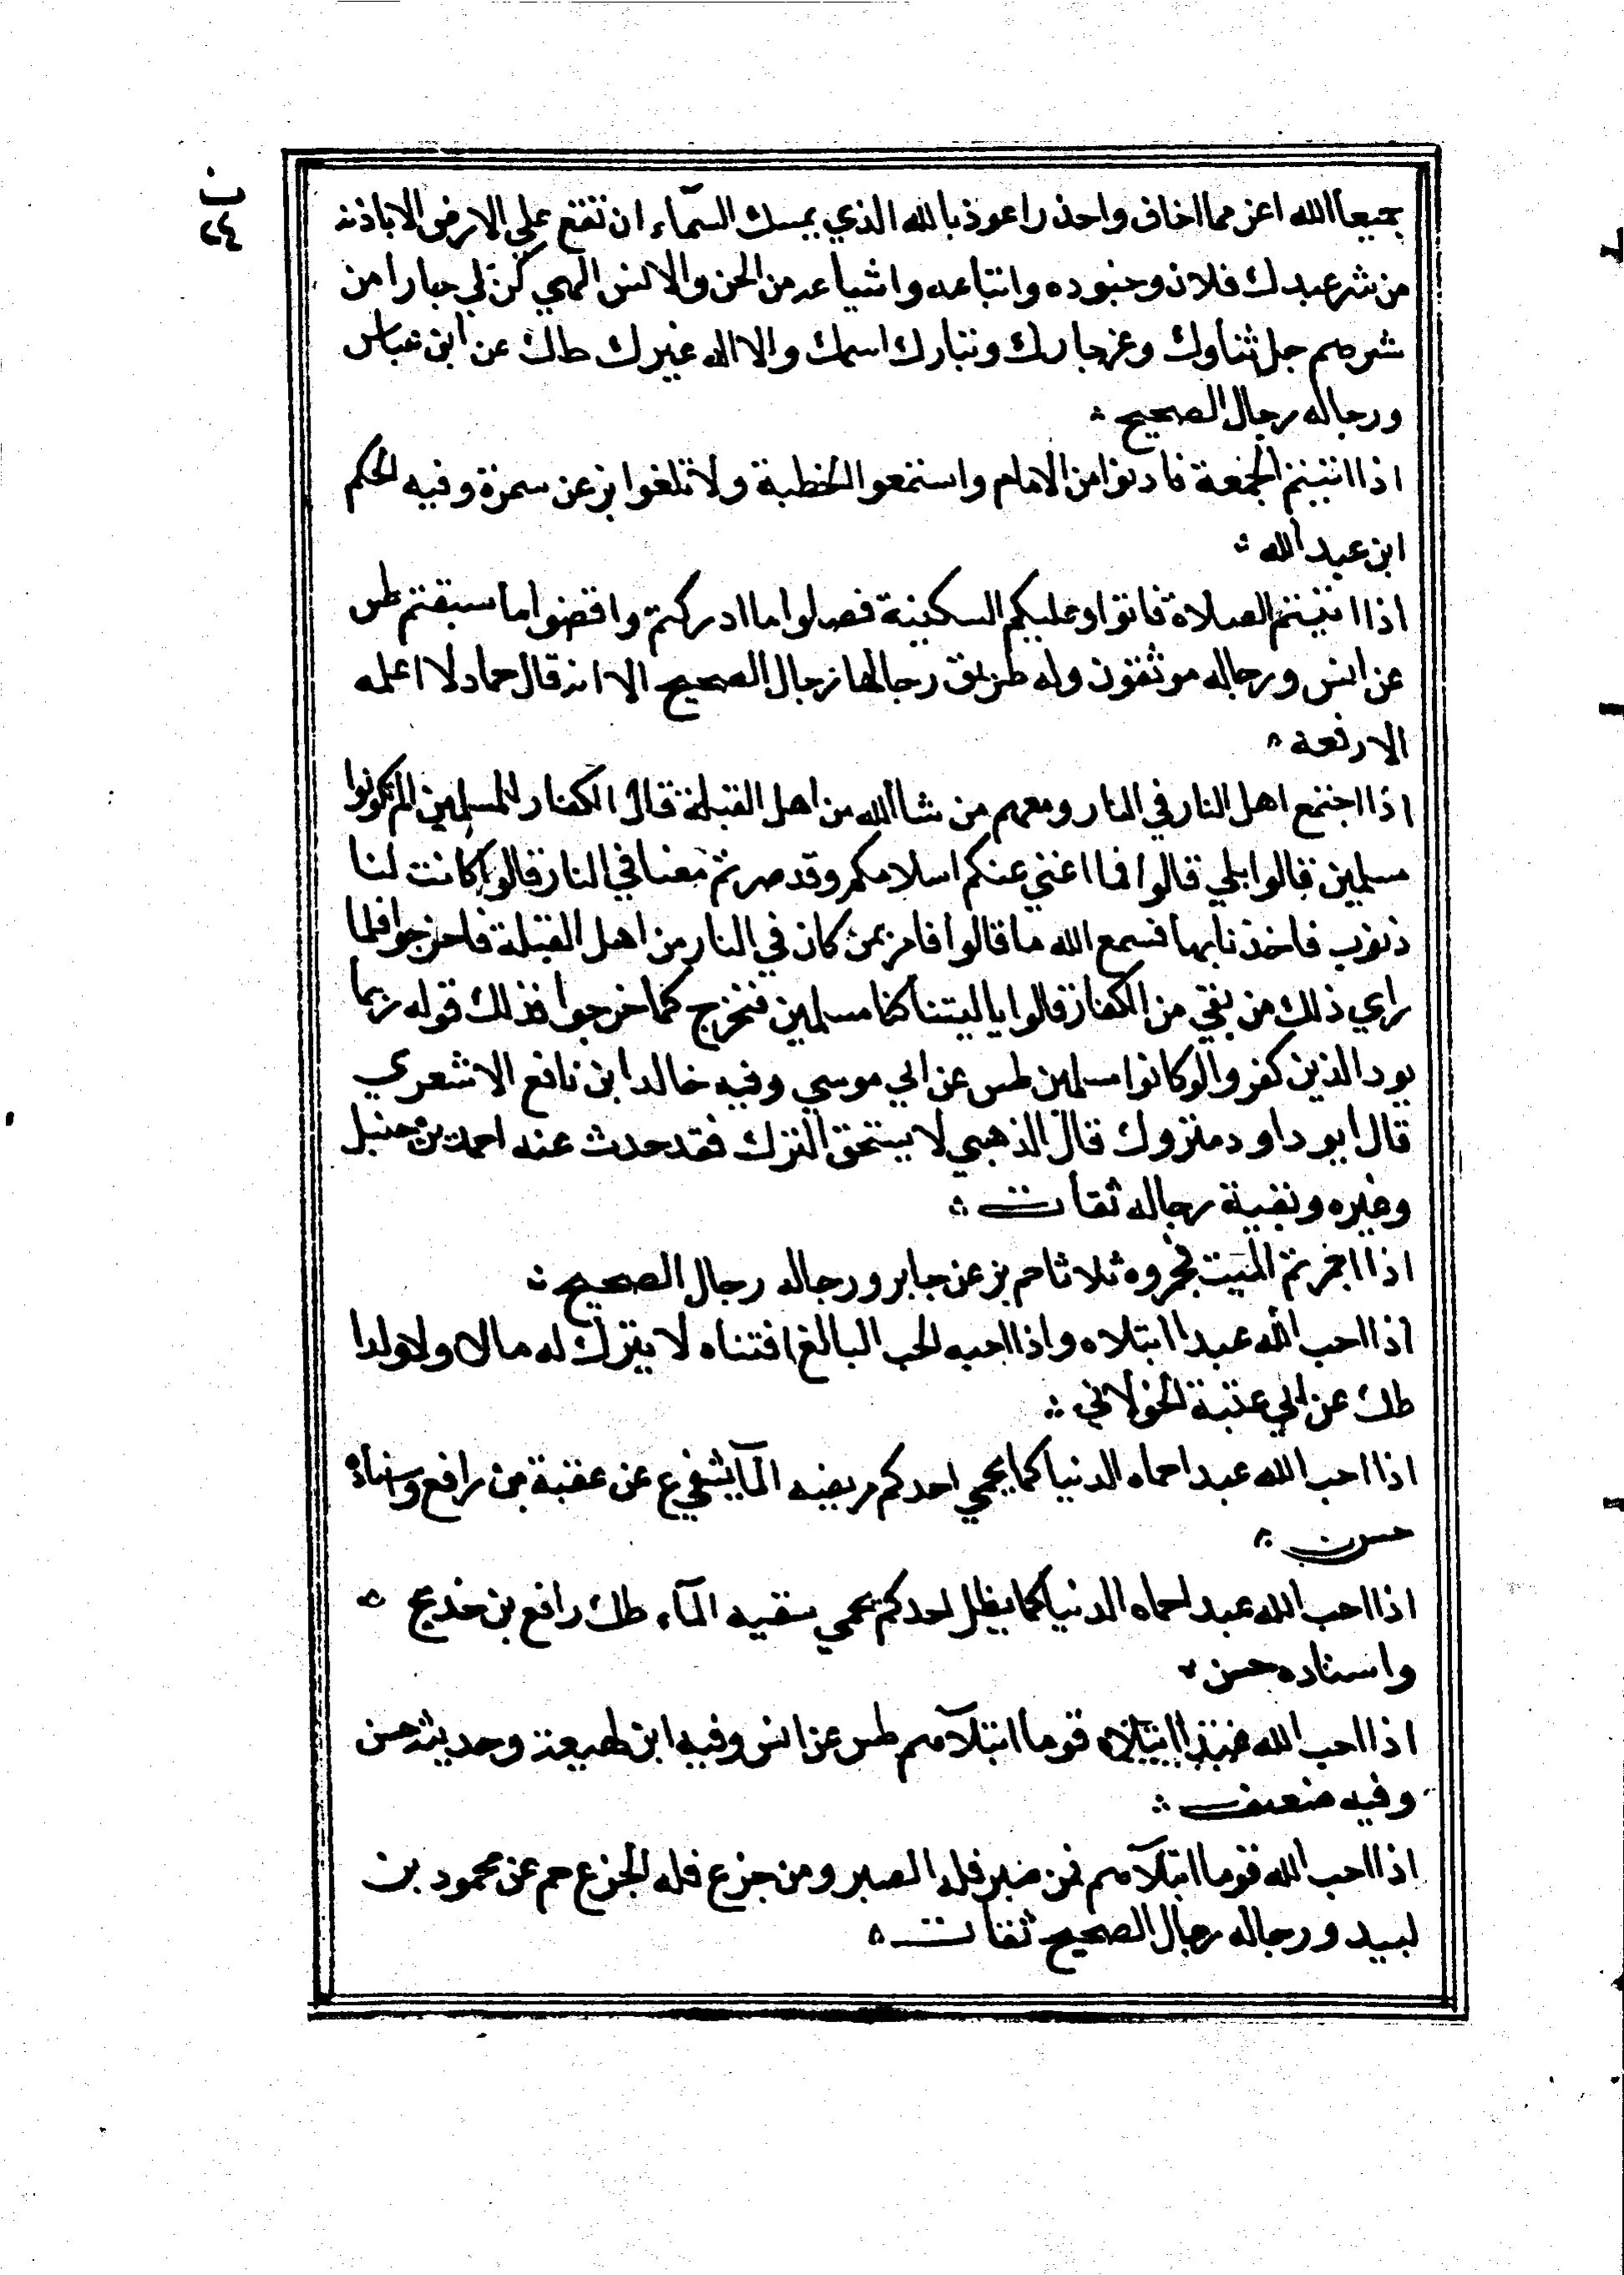 ب
٢٤
جميعا الله اعز مما اخاف واحذر اعوذ بالله الذي يمسك السمآء ان تقع علي الارض الا باذنه
من شر عبدك فلان وجنوده واتباعه واشياعه من الجن والانس الهي كن لي جارا من
شرهم جل ثناوك وعز جارك وتبارك اسمك ولا اله غيرك طك عن ابن عباس
ورجاله رجال الصحيح
اذا اتيتم الجمعة فادنوا من الامام واستمعوا الخطبة ولا تلغوا بز عن سمرة وفيه الحكم
ابن عبد الله
اذا اتيتم الصلاة فاتوا وعليكم السكينة فصلوا ما ادركتم واقضوا ما سبقتم طس
عن انس ورجاله موثقون وله طريق رجالها رجال الصحيح الا انه قال حماد لا اعلمه
الا رفعه
اذا اجتمع اهل النار في النار ومعهم من شا الله من اهل القبلة قال الكفار للمسلمين الم تكونوا
مسلمين قالوا بلي قالوا فما اغني عنكم اسلامكم وقد صرتم معنا في النار قالوا كانت لنا
ذنوب فاخذنا بها فسمع الله ما قالوا فامر بمن كان في النار من اهل القبلة فاخرجوا فلما
راي ذلك من بقي من الكفار قالوا يا ليتنا كنا مسلمين فنخرج كما خرجوا فذلك قوله ربما
يود الذين كفروا لو كانوا مسلمين طس عن ابي موسي وفيه خالد ابن نافع الاشعري
قال ابو داود متروك قال الذهبي لا يستحق الترك فقد حدث عنه احمد بن حنبل
وغيره وبقية رجاله ثقات
اذا اجمرتم الميت فجمروه ثلاثا حم بز عن جابر ورجاله رجال الصحيح
اذا احب الله عبدا ابتلاه واذا احبه الحب البالغ افتناه لا يترك له مالا ولا ولدا
طك عن ابي عتبة الخولاني
اذا احب الله عبدا حماه الدنيا كما يحمي احدكم مريضه المآ يشفي ع عن عقبة بن رافع واسناده
حسن
اذا احب الله عبدا حماه الدنيا كما يظل احدكم يحمي سقيه المآء طك رافع بن خديج
واسناده حسن
اذا احب الله قوما ابتلآهم طس عن انس وفيه ابن لهيعة وحديثه حسن
وفيه ضعف
اذا احب الله قوما ابتلآهم فمن صبر فله الصبر ومن جزع فله الجزع حم عن محمود بن
لبيد ورجاله رجال الصحيح ثقات